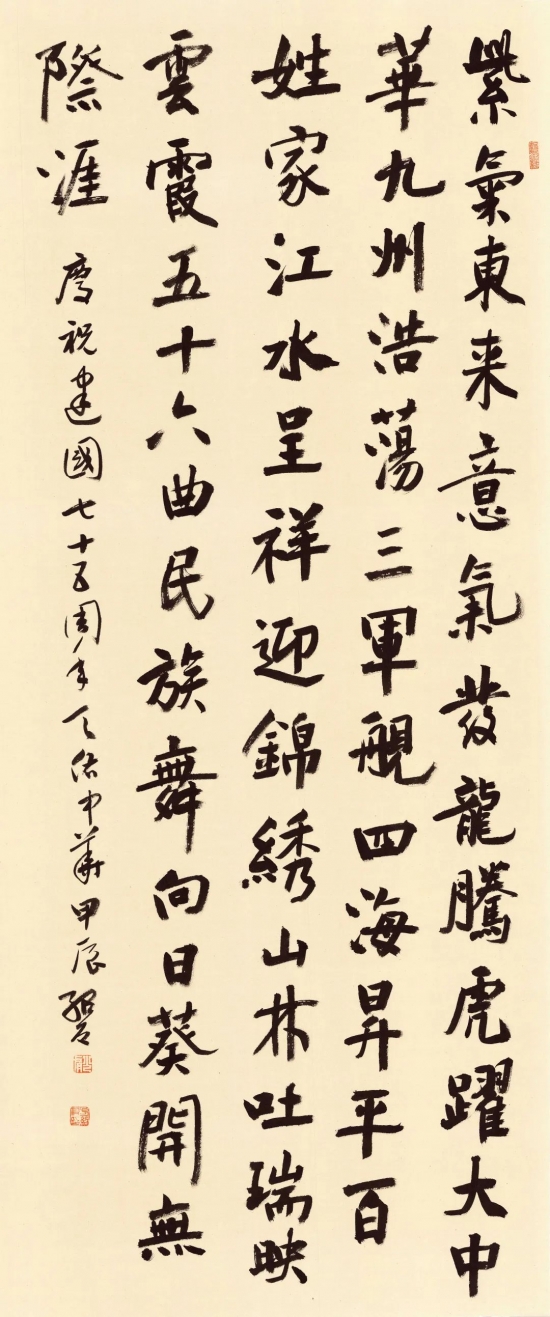 紫氣東来意氣發龍騰虎躍大中
華九州浩蕩三軍舰四海昇平百
姓家江水呈祥迎錦綉山林吐瑞映
雲霞五十六曲民族舞向日葵開無
際涯
慶祝建國七十五周年天佑中華甲辰